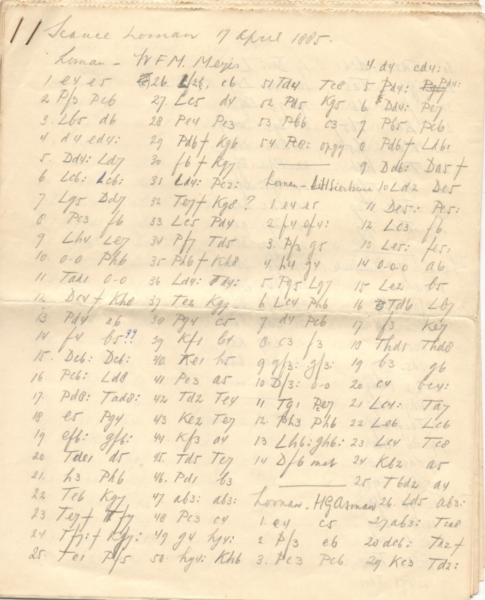 11 Seance Loman 7 April 1885.
Loman - Mr F. M. Meijis
1 e4 e5
2 Pf3 Pc6
3. Lb5 d6
4 d4 ed4:
5. Dd4: Ld7
6 Lc6: Lc6:
7 Lg5 Dd7
8 Pc3 f6
9 Lh4 Le7
10 0-0 Ph6
11 Tad1 0-0
12 Dc4+ Kh8
13 Pd4 a6
14 f4 b5??
15. Dc6: Dc6:
16 Pc6: Ld8
17. Pd8: Tad8:
18 e5 Pg4
19 ef6: gf6:
20 Tde1 d5
21. h3 Ph6
22 Te6 Kg7
23 Te7+
24 Tf7:+ Kf7:
25. Te1 Pf5
26. c6
27. Lc5 d4
28 Pe4 Pe3
29 Pd6+ Kg6
30 f6+ Kg7
31 Ld4: Pc2:
32 Te7+ Kg8?
33 Lc5 Pd4
34 Pf7 Td5
35 Ph6+ Kh8
36 Ld4: Td4:
37 Te2 Kg7
38 Pg4 c5
39 Kf1 b4
40 Ke1 b5
41 Pe3 a5
42 Td2 Te4
43 Ke2 Te7
44 Kf3 a4
45 Td5 Tc7
46. Pd1 b3
47 ab3: ab3:
48 Pc3 c4
49 g4 hg4:
50 hg4: Kh6
51 Td4 Tc8
52 Pd5 Kg5
53 Pb6
54 Pc8: opgg
Loman -
1 e4 e5
2 f4 ef4:
3. Pf3 g5
4 h4 g4
5 Pg5 Lg7
6 Lc4 Ph6
7 d4 Pc6
8 c3 f3
9 gf3: gf3:
10 Df3: 0-0
11 Tg1 Pe7
12 Ph3 Ph6
13 Lh6: gh6:
14 Df6 mat
Loman - HGAsman
1 e4 c5
2 Pf3 e6
3. Pc3 Pc6
4 d4 cd4:
5 Pd4: Pd4:
6 Dd4: Pe7
7 Pb5 Pc6
8 Pd6+ Ld6:
9 Dd6: Da5+
10 Ld2 De5
11 De5: Pe5:
12 Lc3 f6
13 Le5: fe5:
14 0-0-0 a6
15 Le2 b5
16 Td6 Lb7
17 f3 Ke7
18 Thd1 Thd8
19 b3 g6
20 c4 bc4:
21 Lc4: Ta7
22 Le6 Lc6
23 Lc4 Tc8
24 Kb2 a5
25 T6d2 a4
26. Ld5 ab3:
27 ab3: Tca8
28 dc6: Ta2+
29 Kc3 Td2: